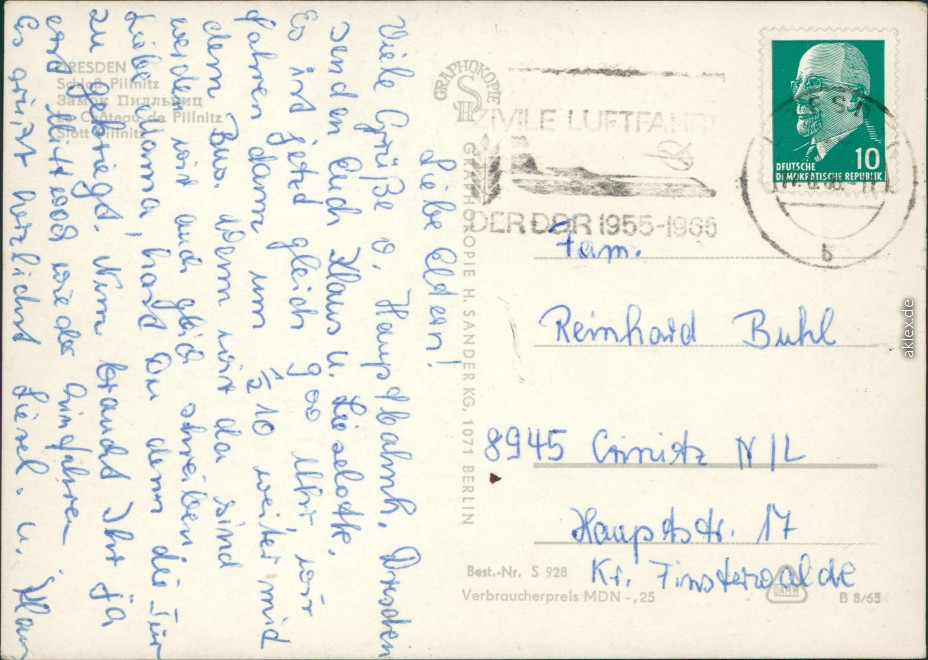 DRESDEN
Schloß Pillnitz
Замок Пилльниц
Le Château de Pillnitz
Slott Pillnitz
Liebe Eltern!
Viele Grüße v. Hauptbahnh. Dresden
senden Euch Klaus u. Lieselotte.
Es ist jetzt gleich 9oo Uhr, wir
fahren dann um ½ 10 weiter mid
dem Bus. Wenn wir da sind
werden wir auch gleich schreiben.
Liebe Mama, hast Du denn die Tür
zu gekriegt. Nun braucht Ihr ja
erst Mittwoch wieder hinfahren
Es grüßt herzlichst Liesel u. Klaus
GRAPHOKOPIE
GRAPHOKOPIE H. SANDER KG, 1071 BERLIN
ZIVILE LUFTFAHRT
DER DDR 1955-1965
DEUTSCHE
DEMOKRATISCHE REPUBLIK
10
b
Fam.
Reinhard Buhl
8945 Crinitz N/L
Hauptstr. 17
Kr. Finsterwalde
Best.-Nr. S 928
Verbraucherpreis MDN -,25
B 8/65
aklex.de